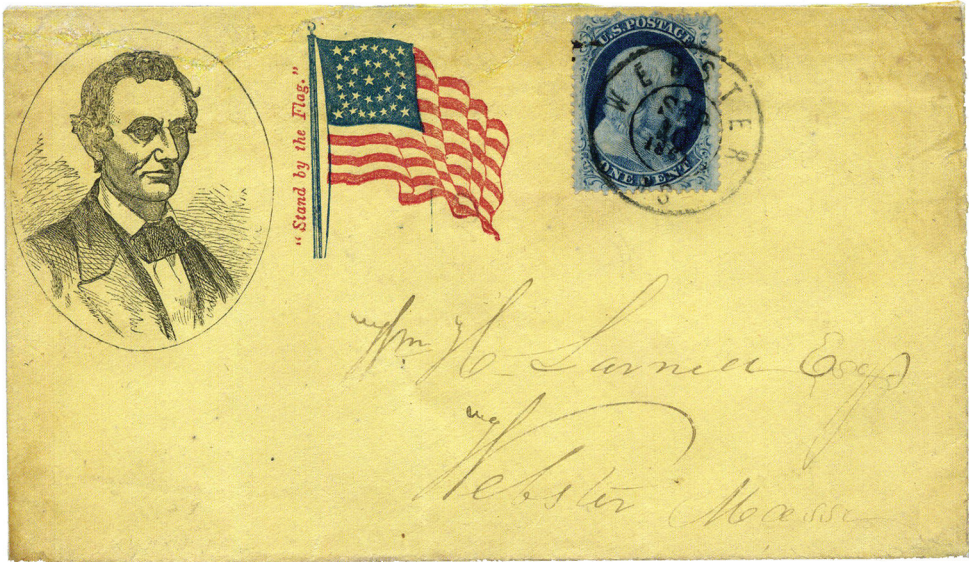 "Stand by the Flag."
U.S. POSTAGE
ONE CENT
WEBSTER
Wm H. Larned Esqr
Webster Mass